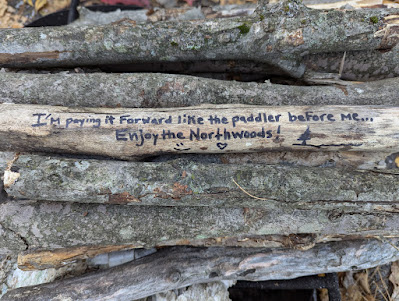 I'm paying it Forward like the paddler before me...
Enjoy the Northwoods!